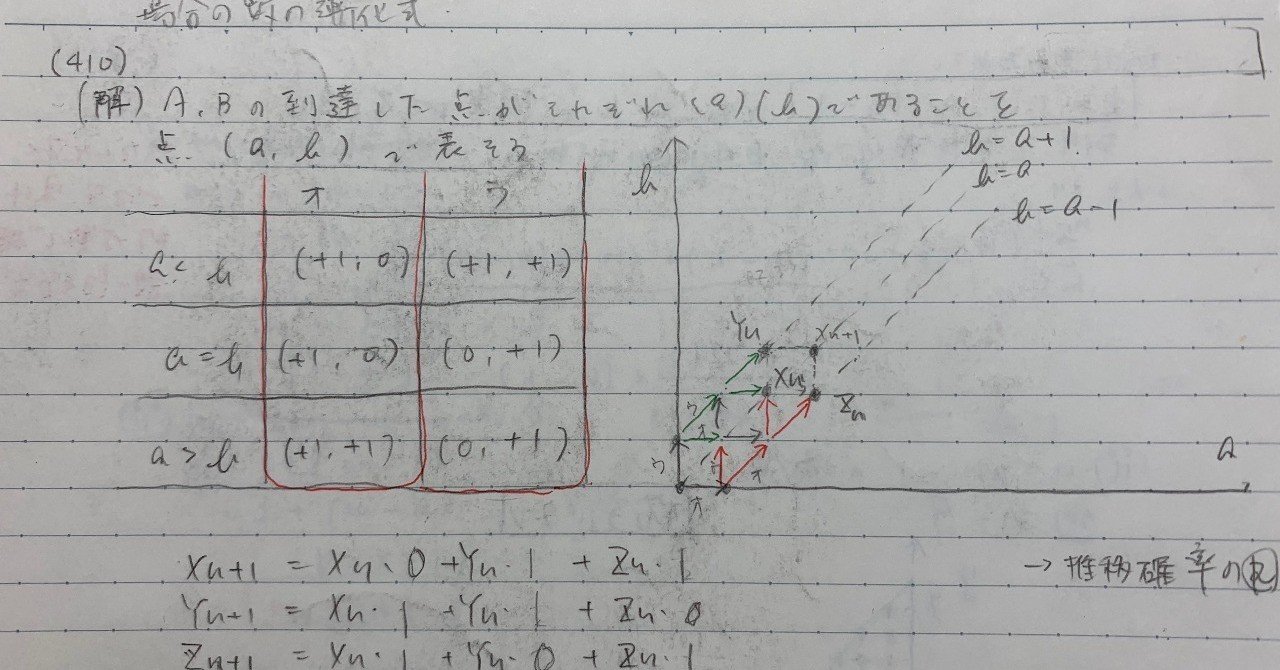 場合の数の漸化式
(410)
(解) A, Bの到達した点がそれぞれ (a) (b) であることを
点 (a, b) で表そう
オ ウ
a < b (+1, 0) (+1, +1)
a = b (+1, 0) (0, +1)
a > b (+1, +1) (0, +1)
b
b = a+1
b = a
b = a-1
Yn Xn+1
Xn
Zn
ウ オ
ウ オ
オ
a
Xn+1 = Xn・0 + Yn・1 + Zn・1
→ 推移確率の
Yn+1 = Xn・1 + Yn・1 + Zn・0
Zn+1 = Xn・1 + Yn・0 + Zn・1